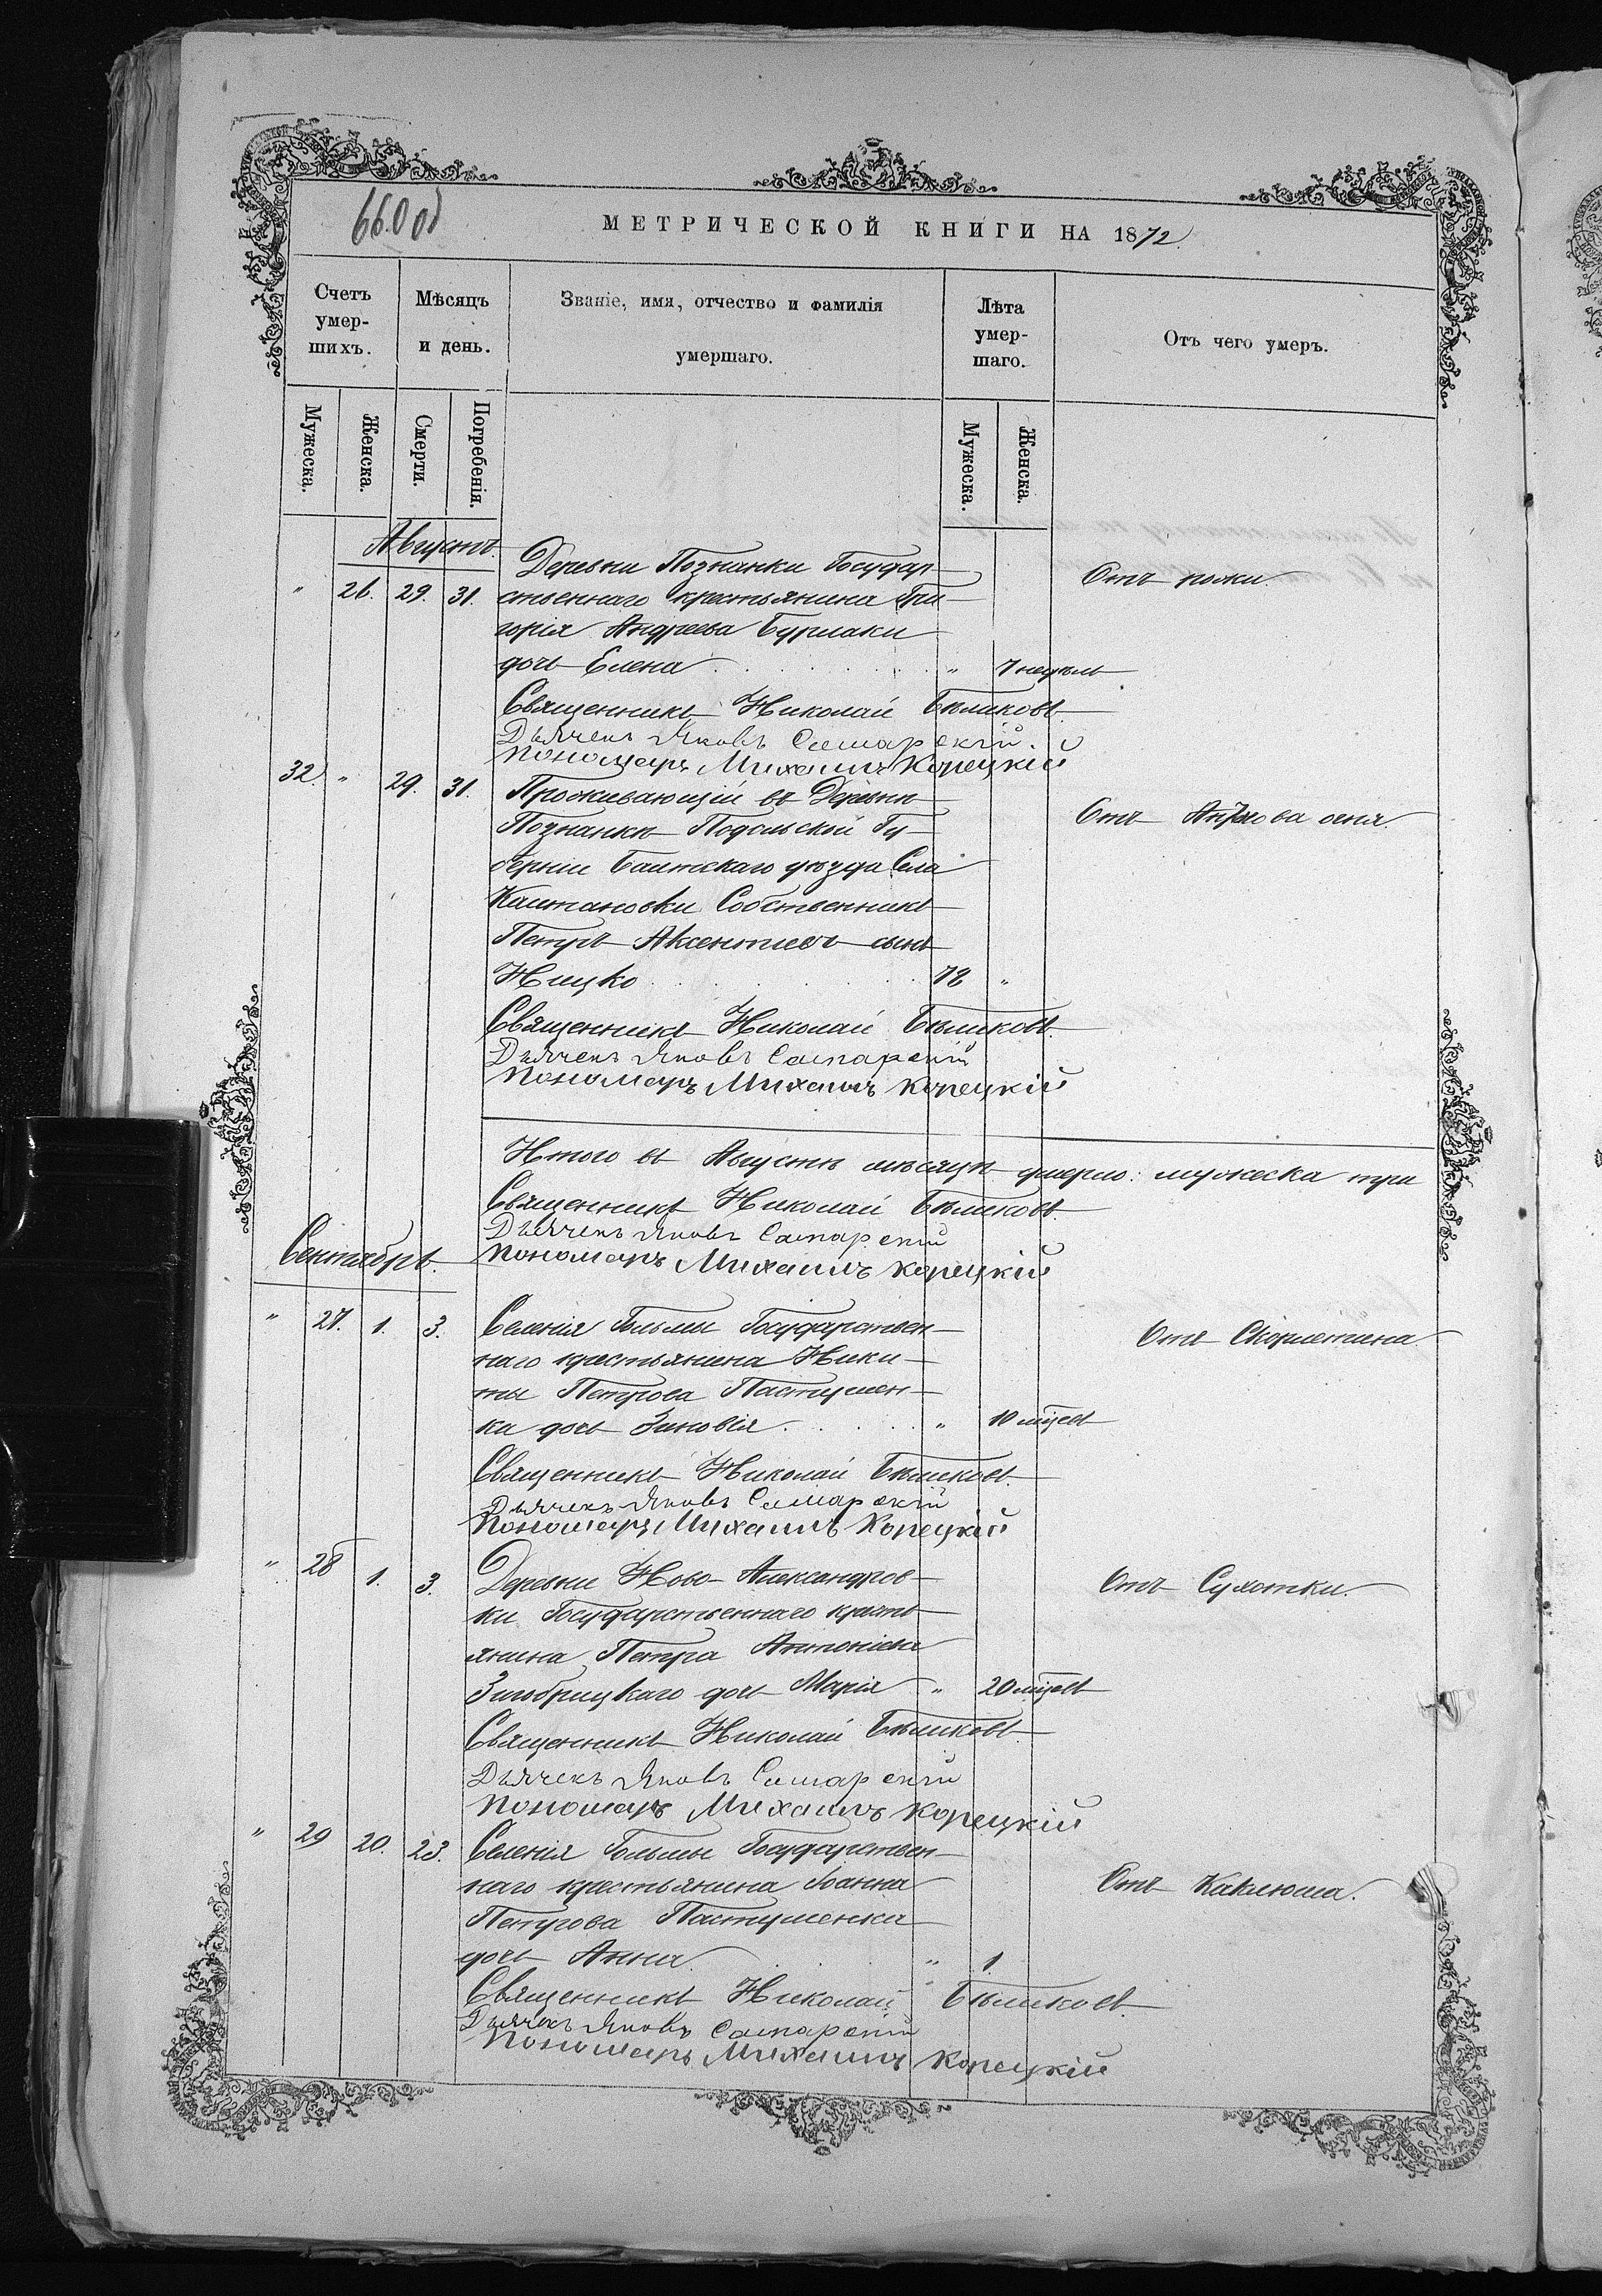 660 об
МЕТРИЧЕСКОЙ КНИГИ НА 1872.
Счетъ умер-шихъ.
Мѣсяцъ и день.
Званіе, имя, отчество и фамилія умершаго.
Лѣта умер-шаго.
Отъ чего умеръ.
Мужеска.
Женска.
Смерти.
Погребенія.
Мужеска.
Женска.
Августъ.
Деревни Познанки Государ-
" 26. 29. 31. ственнаго крестьянина Гри- Отъ рожи.
горія Андреева Бурлаки
дочь Елена " 7 недѣль
Священникъ Николай Бѣликовъ.
Дьячекъ Яковъ Самарскій.
Пономарь Михаилъ Корецкій
32. " 29. 31. Проживающій въ Деревнѣ
Познанкѣ Подольской Гу- Отъ Антонова огня.
берніи Балтскаго уѣзда Села
Каштановки Собственникъ
Петръ Аксентіевъ сынъ
Ницко 72 "
Священникъ Николай Бѣликовъ.
Дьячекъ Яковъ Самарскій
Пономарь Михаилъ Корецкій
Итого въ Августѣ мѣсяцѣ умерло: мужеска три
Священникъ Николай Бѣликовъ.
Дьячекъ Яковъ Самарскій
Пономарь Михаилъ Корецкій
Сентябрь.
" 27. 1. 3. Селенія Гольмы Государствен- Отъ Скорлетина
наго крестьянина Ники-
ты Петрова Пастушен-
ка дочь Зиновія " 10 мцевъ
Священникъ Николай Бѣликовъ.
Дьячекъ Яковъ Самарскій
Пономарь Михаилъ Корецкій
" 28 1. 3. Деревни Ново-Александров- Отъ Сухотки.
ки Государственнаго кресть-
янина Петра Антоніева
дочь Марія " 20 мцевъ
Священникъ Николай Бѣликовъ.
Дьячекъ Яковъ Самарскій
Пономарь Михаилъ Корецкій
" 29 20. 23. Селенія Гольмы Государствен-
наго крестьянина Іоанна Отъ Каклюша.
Петрова Пастушенка
дочь Анна " 1.
Священникъ Николай Бѣликовъ
Дьячекъ Яковъ Самарскій
Пономарь Михаилъ Корецкій